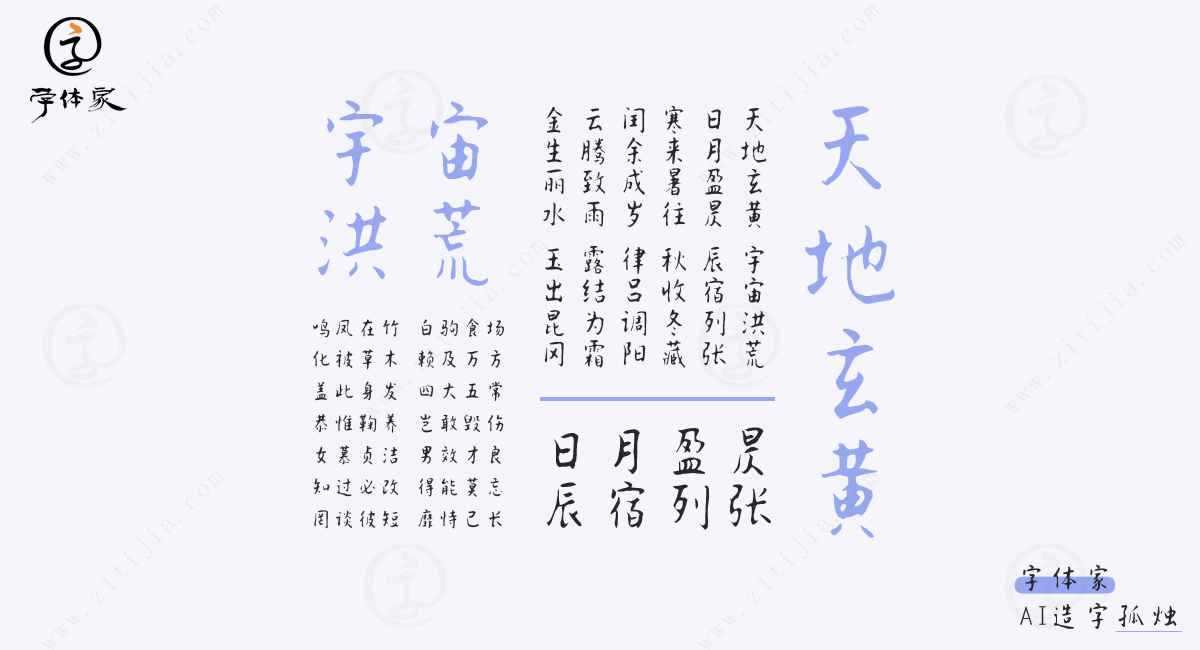 字体家
天地玄黄
宇宙
洪荒
天地玄黄 宇宙洪荒
日月盈昃 辰宿列张
寒来暑往 秋收冬藏
闰余成岁 律吕调阳
云腾致雨 露结为霜
金生丽水 玉出昆冈
日月盈昃
辰宿列张
鸣凤在竹 白驹食场
化被草木 赖及万方
盖此身发 四大五常
恭惟鞠养 岂敢毁伤
女慕贞洁 男效才良
知过必改 得能莫忘
罔谈彼短 靡恃己长
字体家
AI造字孤烛
www.zitijia.com
www.zitijia.com
www.zitijia.com
www.zitijia.com
www.zitijia.com
www.zitijia.com